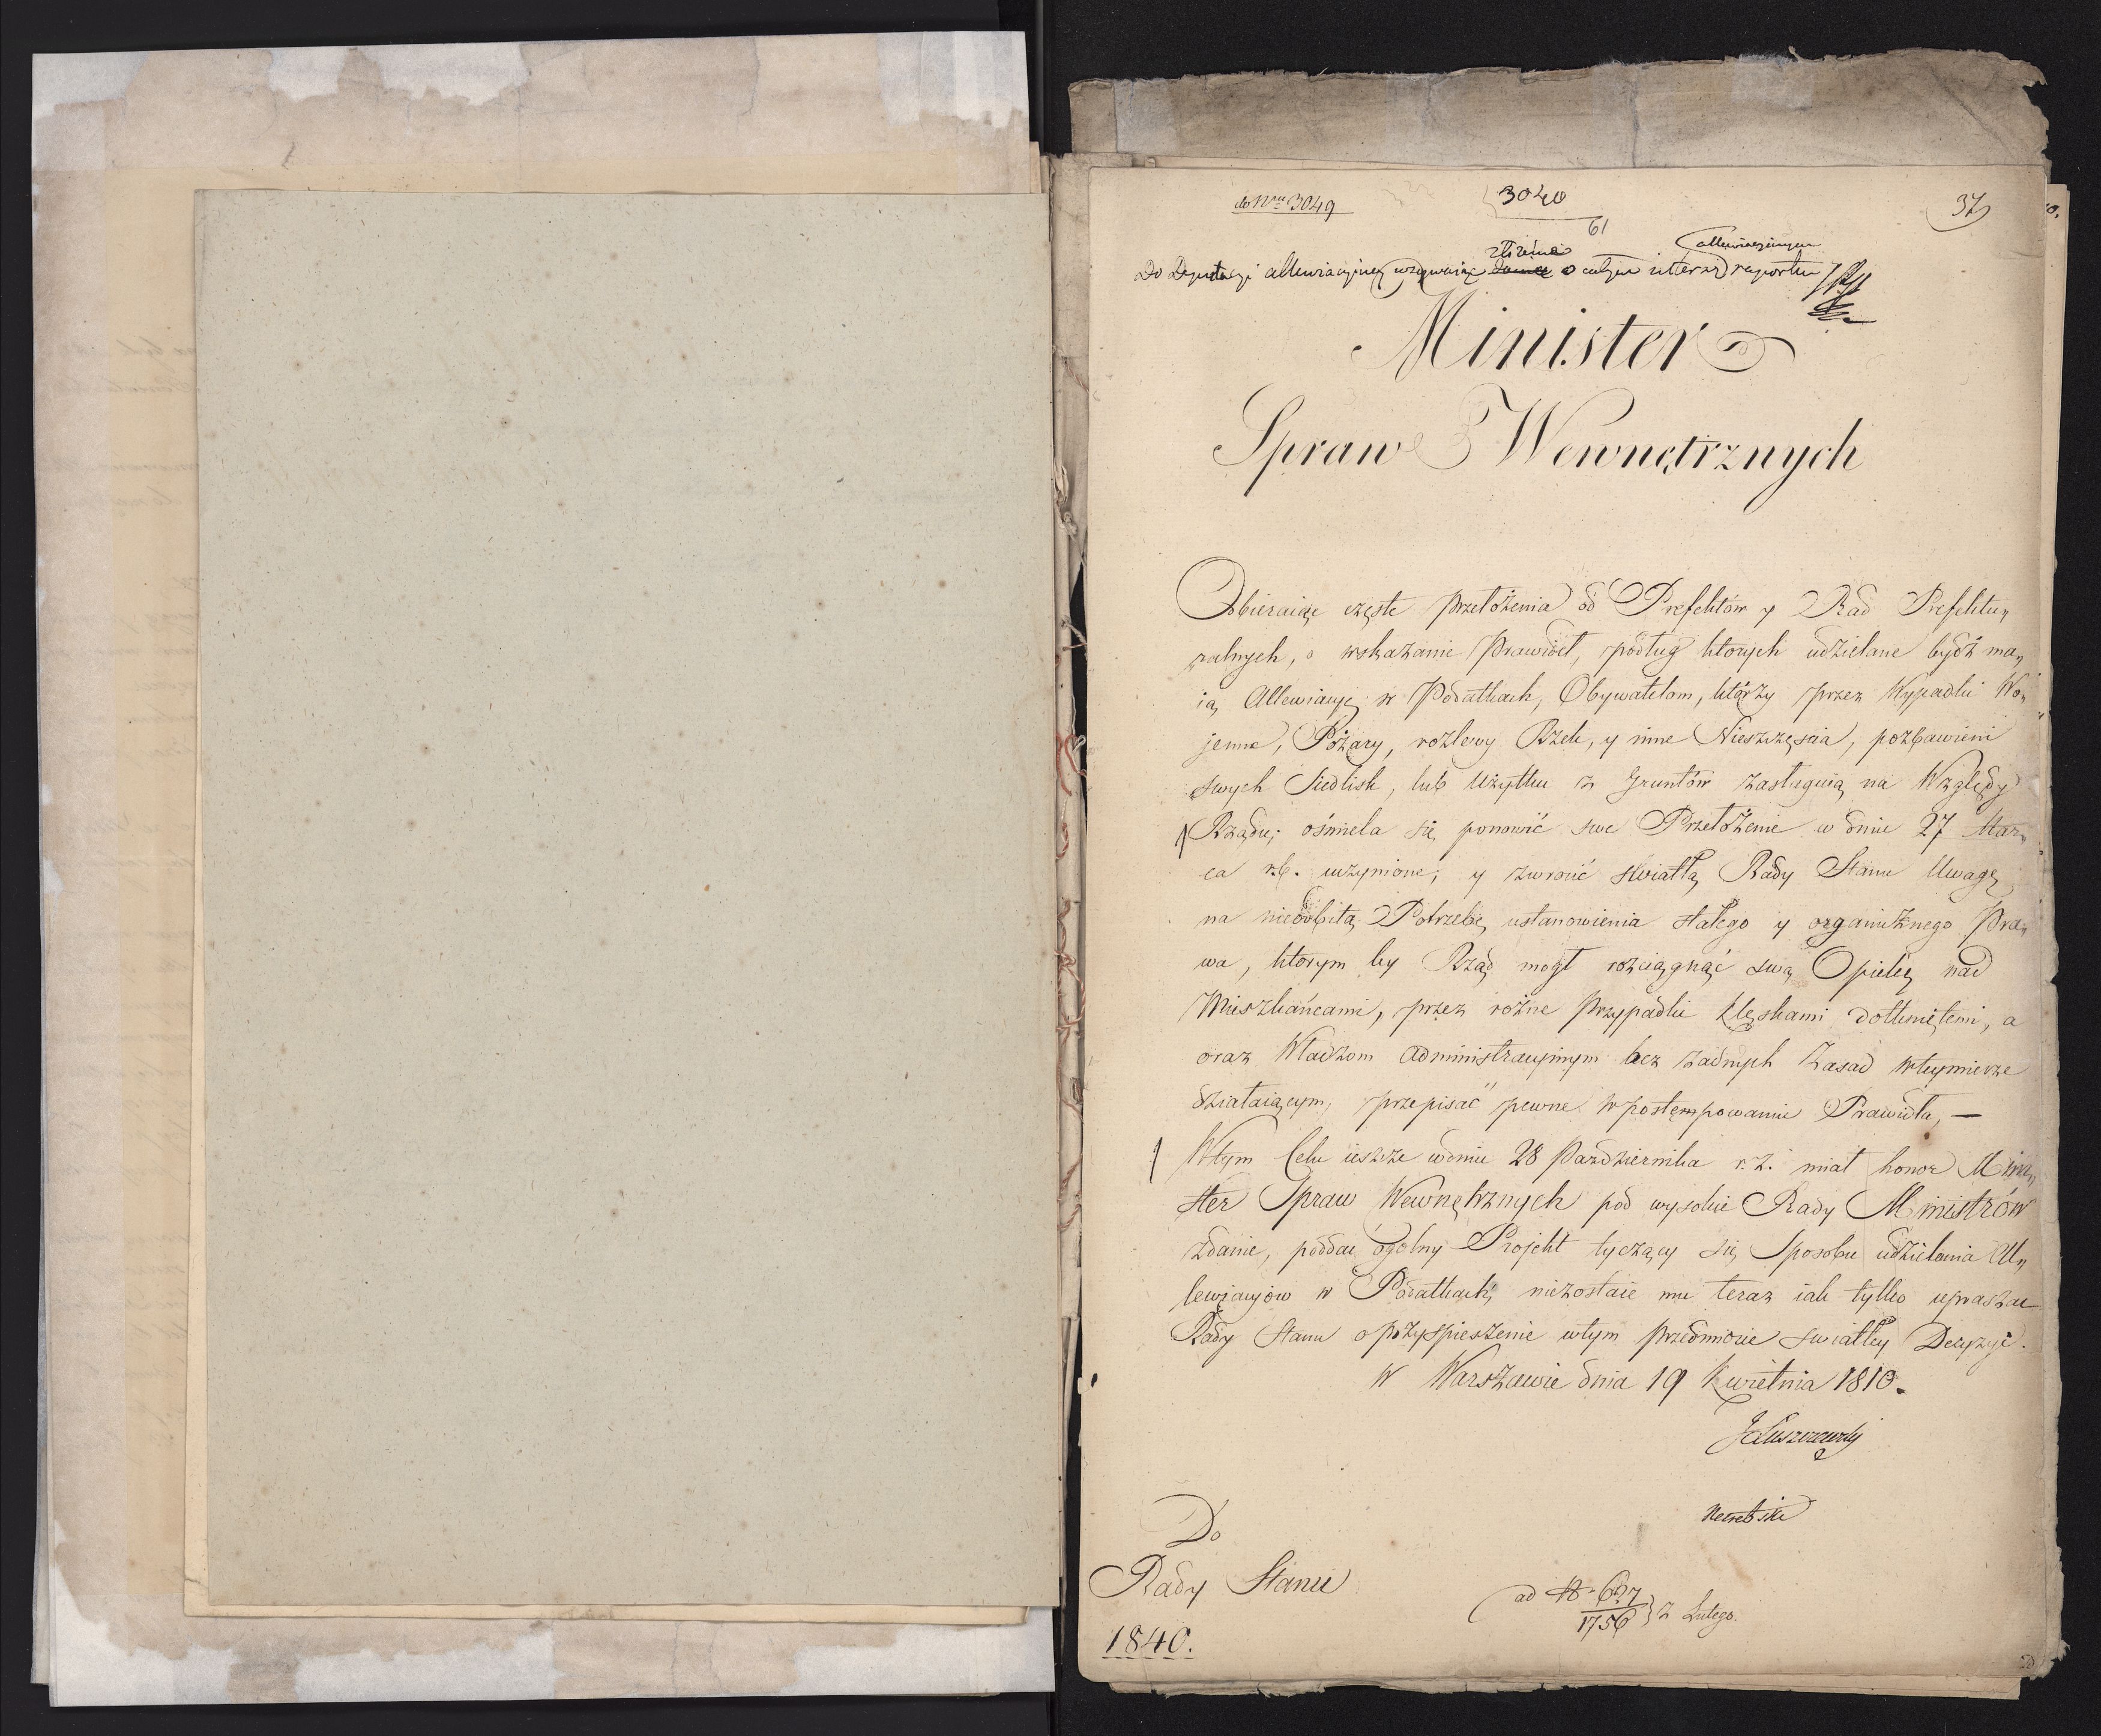 do Nru 3049
3040
37
61
Do Deputacyi allewiacyjney wzywaiąc o całym interes raportu
allewiacyinym
Minister
Spraw Wewnętrznych
Odbieraiąc częste przełożenia od Prefektów y Rad Prefektu„
ralnych, o wskazanie Prawideł, podług ktorych udzielane bydź ma„
ią Allewiacye w Podatkach, Obywatelom, którzy przez Wypadki Wo„
jenne, Pożary, rozlewy Rzek, y inne Nieszczęscia, pozbawieni
swych Siedlisk, lub Użytku z Gruntów zasługuią na Względy
Rządu; ośmiela się ponowić swe Przełożenie w dniu 27 Mar„
ca r.b. uczynione; y zwrocić światłą Rady Stanu Uwagę
na nieodbitą Potrzebę ustanowienia stałego y organicznego Pra„
wa, ktorym by Rząd mogł rozciągnąć swą Opiekę nad
Mieszkańcami, przez rożne Przypadki klęskami dotkniętemi, a
oraz Władzom administracyinym bez żadnych Zasad wteymierze
działaiącym, przepisać pewne w postempowaniu Prawidła, —
Wtym Celu ieszcze wdniu 28 Pazdziernika r.z. miał honor Mini„
ster Spraw Wewnętrznych pod wysokie Rady Ministrów
zdanie, poddać ogolny Projekt tyczący się Sposobu udzielania Al„
lewiacyjow w Podatkach, niezostaie mu teraz iak tylko upraszać
Rady Stanu o przyspieszenie wtym przedmiocie swiatłey Decyzyi.
W Warszawie dnia 19 Kwietnia 1810.
JŁuszczewski
Do
Rady Stanu
ad N. 627
1756 } z Lutego.
1840.